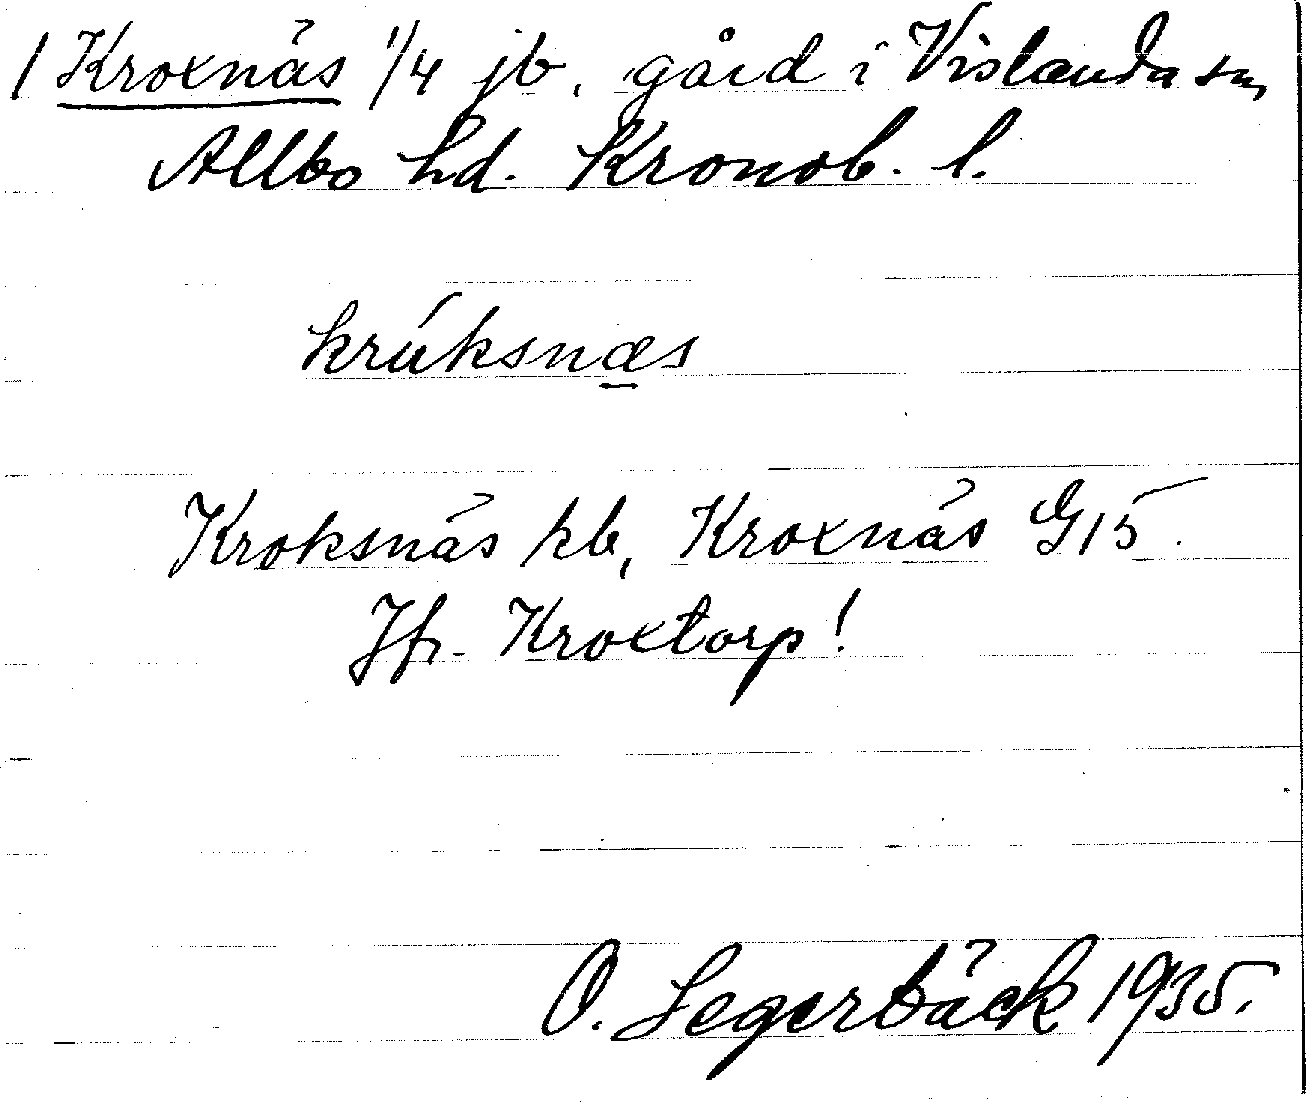 / Kroxnäs 1/4 jb. gård i Vislanda sn,
Allbo hd. Kronob. l.
krúksnæs
Kroksnäs kb, Kroxnäs G15.
Jfr. Kroxtorp!
O. Segerbäck 1935.